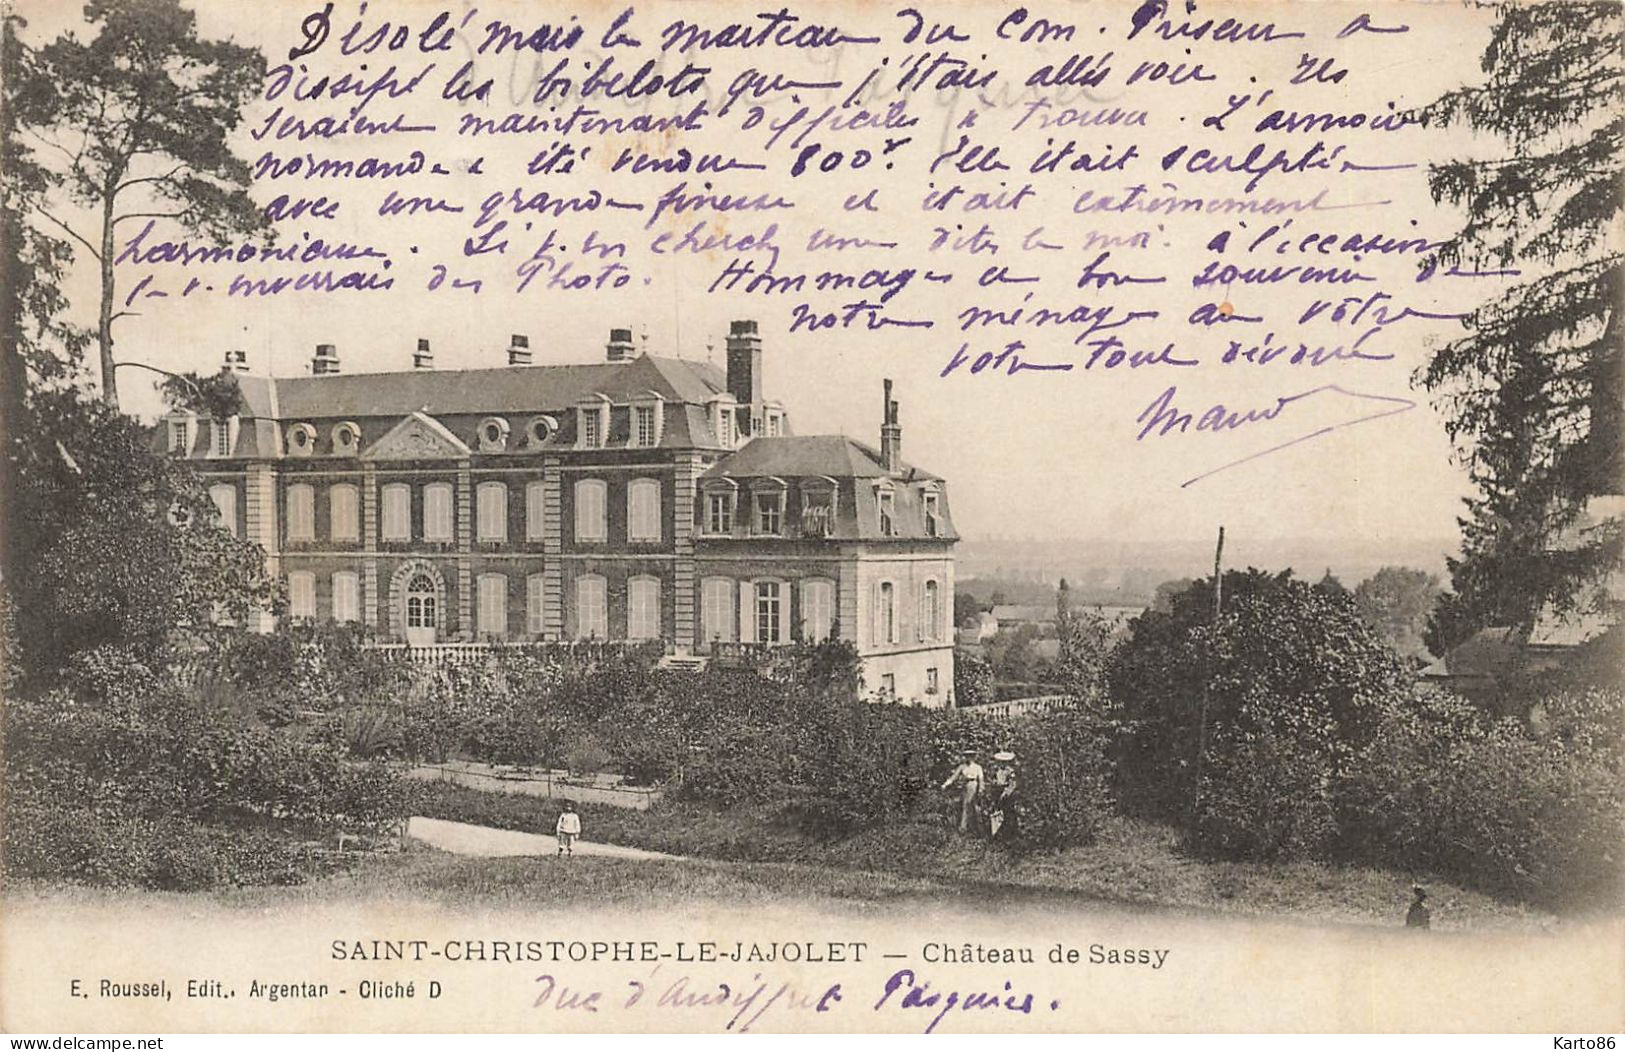 Désolé mais le marteau du Com. Priseur a
dissipé les bibelots que j'étais allés voir. Ils
seraient maintenant difficiles à trouver. L'armoire
normande a été vendue 800f. Elle était sculptée
avec une grande finesse et était extrêmement
harmonieuse. Si v. en cherch une dites le moi. à l'occasion
je v. enverrais des Photo. Hommages et bon souvenir de
notre ménage au vôtre
votre tout dévoué
SAINT-CHRISTOPHE-LE-JAJOLET — Château de Sassy
E. Roussel, Edit., Argentan - Cliché D
Duc d'Audiffret Pasquier.
delcampe.net
Karto86